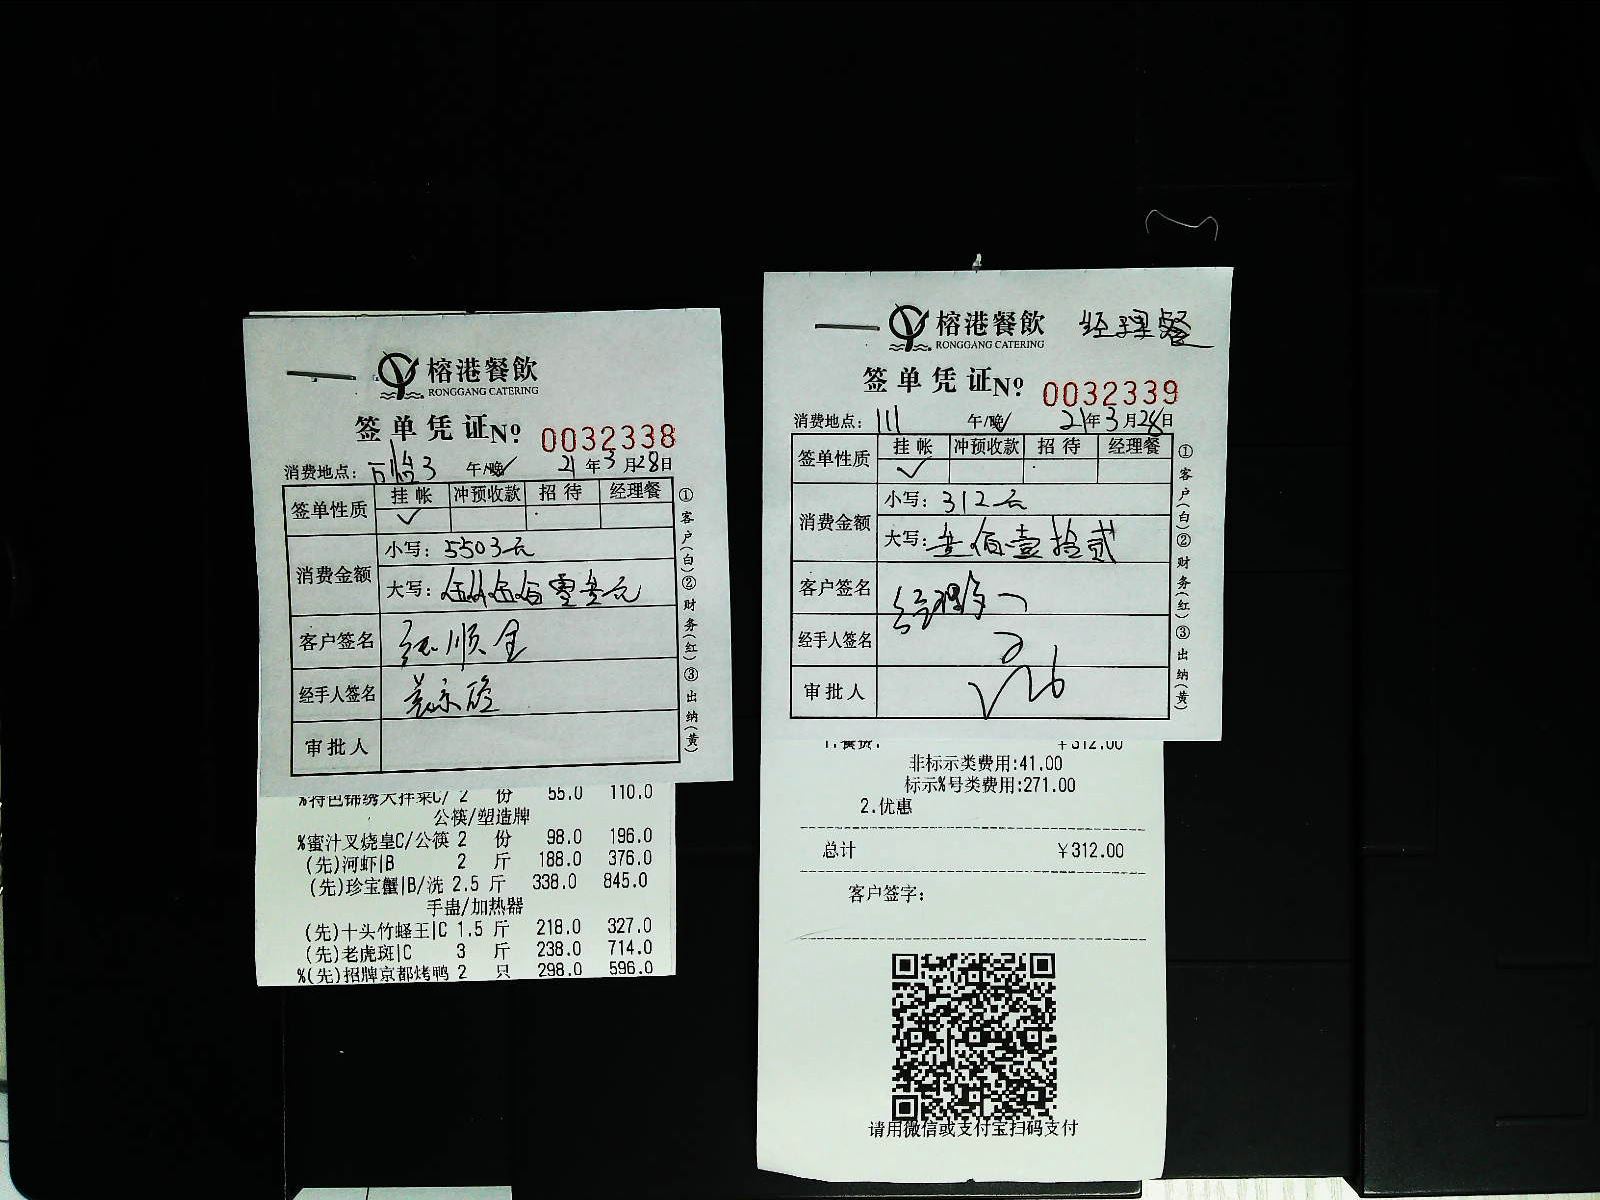 榕港餐飲
RONGGANG CATERING
签单凭证 Nº 0032338
消费地点： 3 午/晚✓ 21年3月28日
签单性质 挂帐 冲预收款 招待 经理餐
✓
消费金额 小写：5503元
大写：伍仟伍佰零叁元
客户签名 顺全
经手人签名
审批人
①客户(白)②财务(红)③出纳(黄)
%特色锦绣大拌菜C/ 2 份 55.0 110.0
公筷/塑造牌
%蜜汁叉烧皇C/公筷 2 份 98.0 196.0
(先)河虾|B 2 斤 188.0 376.0
(先)珍宝蟹|B/洗 2.5 斤 338.0 845.0
手蛊/加热器
(先)十头竹蛏王|C 1.5 斤 218.0 327.0
(先)老虎斑|C 3 斤 238.0 714.0
%(先)招牌京都烤鸭 2 只 298.0 596.0
榕港餐飲 经理餐
RONGGANG CATERING
签单凭证 Nº 0032339
消费地点：111 午/晚✓ 21年3月28日
签单性质 挂帐 冲预收款 招待 经理餐
✓
消费金额 小写：312元
大写：叁佰壹拾贰
客户签名 经理餐
经手人签名
审批人
①客户(白)②财务(红)③出纳(黄)
1.餐费: ￥312.00
非标示类费用:41.00
标示%号类费用:271.00
2.优惠
总计 ￥312.00
客户签字:
请用微信或支付宝扫码支付